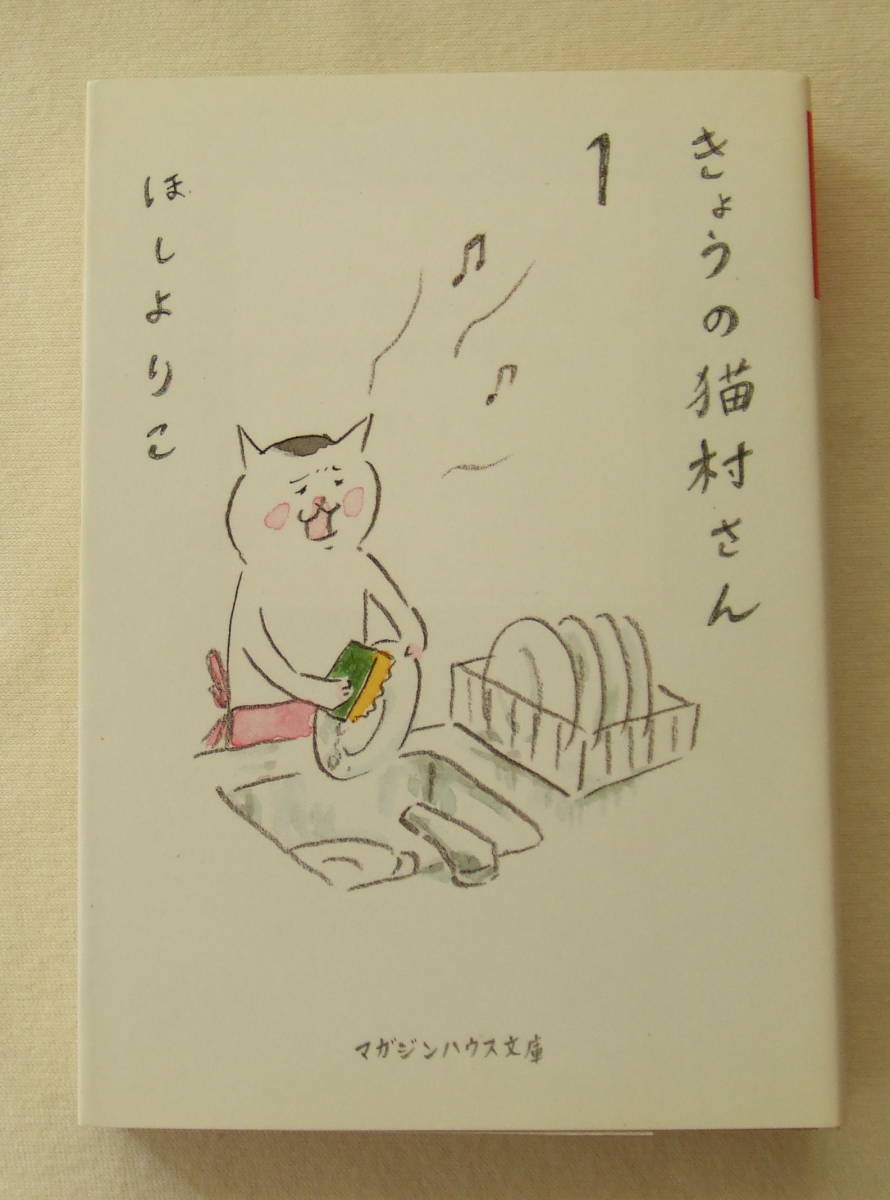 きょうの猫村さん
1
ほしよりこ
マガジンハウス文庫